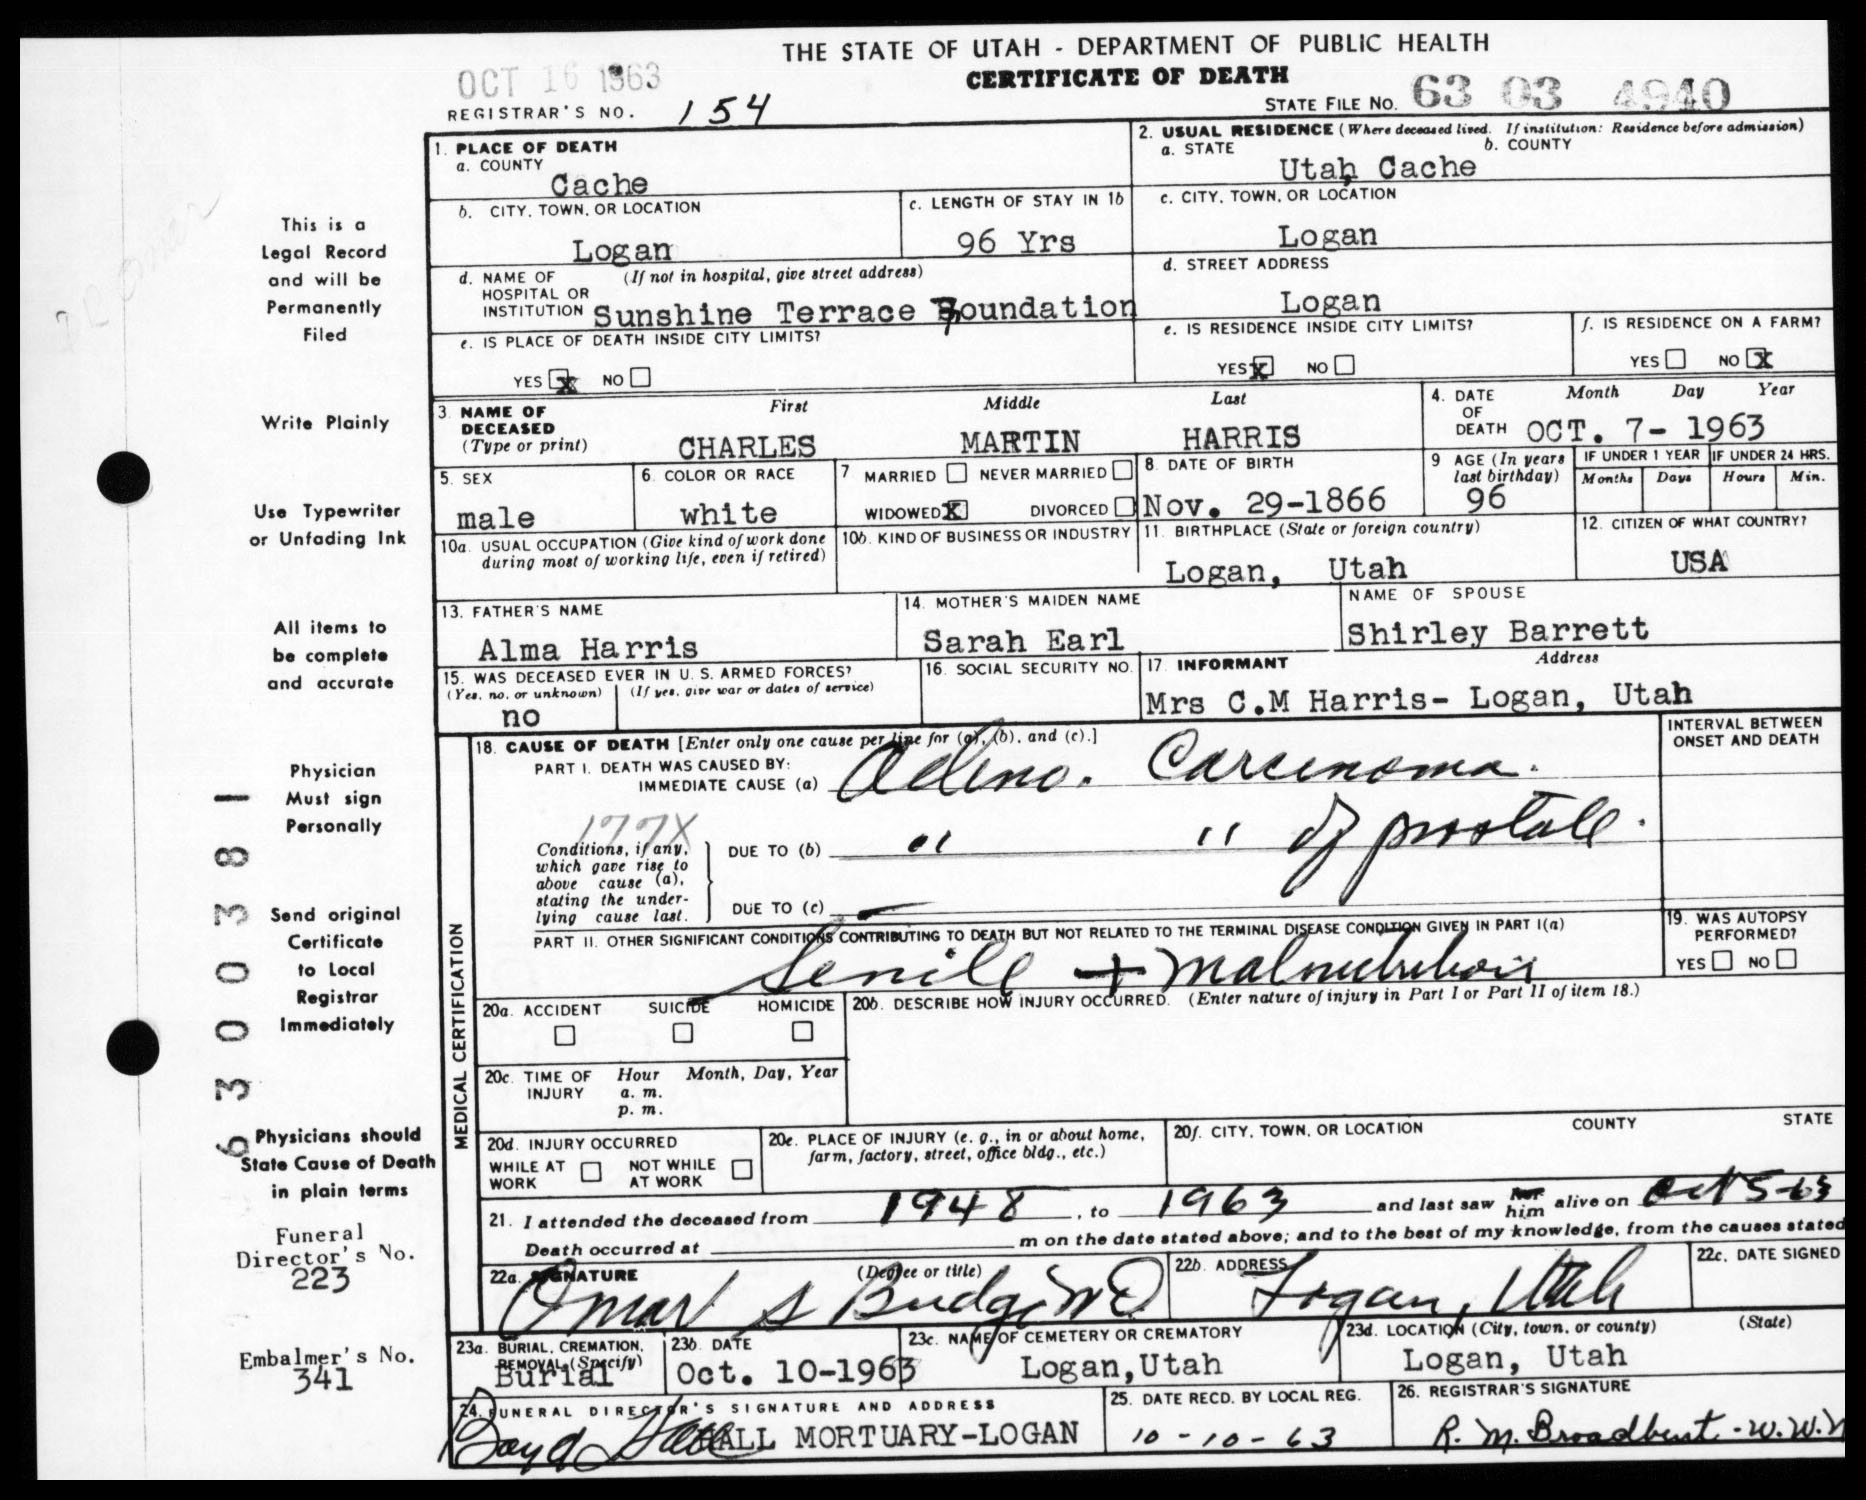 THE STATE OF UTAH - DEPARTMENT OF PUBLIC HEALTH
CERTIFICATE OF DEATH
OCT 16 1963
REGISTRAR'S NO. 154
STATE FILE NO. 63 03 4940
1. PLACE OF DEATH
a. COUNTY
Cache
2. USUAL RESIDENCE (Where deceased lived. If institution: Residence before admission)
a. STATE b. COUNTY
Utah, Cache
b. CITY, TOWN, OR LOCATION
Logan
c. LENGTH OF STAY IN 1b
96 Yrs
c. CITY, TOWN, OR LOCATION
Logan
d. NAME OF (If not in hospital, give street address)
HOSPITAL OR
INSTITUTION Sunshine Terrace Foundation
d. STREET ADDRESS
Logan
e. IS PLACE OF DEATH INSIDE CITY LIMITS?
YES x NO
e. IS RESIDENCE INSIDE CITY LIMITS?
YES X NO
f. IS RESIDENCE ON A FARM?
YES NO X
3. NAME OF
DECEASED
(Type or print)
First Middle Last
CHARLES MARTIN HARRIS
4. DATE
OF
DEATH
Month Day Year
OCT. 7- 1963
5. SEX
male
6. COLOR OR RACE
white
7 MARRIED NEVER MARRIED
WIDOWED X DIVORCED
8. DATE OF BIRTH
Nov. 29-1866
9 AGE (In years
last birthday)
96
IF UNDER 1 YEAR
Months Days
IF UNDER 24 HRS.
Hours Min.
10a. USUAL OCCUPATION (Give kind of work done
during most of working life, even if retired)
10b. KIND OF BUSINESS OR INDUSTRY
11. BIRTHPLACE (State or foreign country)
Logan, Utah
12. CITIZEN OF WHAT COUNTRY?
USA
13. FATHER'S NAME
Alma Harris
14. MOTHER'S MAIDEN NAME
Sarah Earl
NAME OF SPOUSE
Shirley Barrett
15. WAS DECEASED EVER IN U. S. ARMED FORCES?
(Yes, no, or unknown) (If yes, give war or dates of service)
no
16. SOCIAL SECURITY NO.
17. INFORMANT Address
Mrs C.M Harris- Logan, Utah
MEDICAL CERTIFICATION
18. CAUSE OF DEATH [Enter only one cause per line for (a), (b), and (c).]
PART I. DEATH WAS CAUSED BY:
IMMEDIATE CAUSE (a) Adeno. Carcinoma.
INTERVAL BETWEEN
ONSET AND DEATH
177X
Conditions, if any,
which gave rise to
above cause (a),
stating the under-
lying cause last.
DUE TO (b) " " of prostate.
DUE TO (c) —
PART II. OTHER SIGNIFICANT CONDITIONS CONTRIBUTING TO DEATH BUT NOT RELATED TO THE TERMINAL DISEASE CONDITION GIVEN IN PART I(a)
Senile + Malnutrition
19. WAS AUTOPSY
PERFORMED?
YES NO
20a. ACCIDENT SUICIDE HOMICIDE
20b. DESCRIBE HOW INJURY OCCURRED. (Enter nature of injury in Part I or Part II of item 18.)
20c. TIME OF
INJURY
Hour Month, Day, Year
a. m.
p. m.
20d. INJURY OCCURRED
WHILE AT
WORK
NOT WHILE
AT WORK
20e. PLACE OF INJURY (e. g., in or about home,
farm, factory, street, office bldg., etc.)
20f. CITY, TOWN, OR LOCATION COUNTY STATE
21. I attended the deceased from 1948, to 1963 and last saw her him alive on Oct 5-63
Death occurred at m on the date stated above; and to the best of my knowledge, from the causes stated
22a. SIGNATURE (Degree or title)
Omar S Budge MD
22b. ADDRESS
Logan, Utah
22c. DATE SIGNED
23a. BURIAL, CREMATION,
REMOVAL (Specify)
Burial
23b. DATE
Oct. 10-1963
23c. NAME OF CEMETERY OR CREMATORY
Logan, Utah
23d. LOCATION (City, town, or county) (State)
Logan, Utah
24. FUNERAL DIRECTOR'S SIGNATURE AND ADDRESS
Boyd Hall HALL MORTUARY-LOGAN
25. DATE RECD. BY LOCAL REG.
10-10-63
26. REGISTRAR'S SIGNATURE
R. M. Broadbent - W.W.N
This is a
Legal Record
and will be
Permanently
Filed
Write Plainly
Use Typewriter
or Unfading Ink
All items to
be complete
and accurate
Physician
Must sign
Personally
Send original
Certificate
to Local
Registrar
Immediately
Physicians should
State Cause of Death
in plain terms
Funeral
Director's No.
223
Embalmer's No.
341
6300381